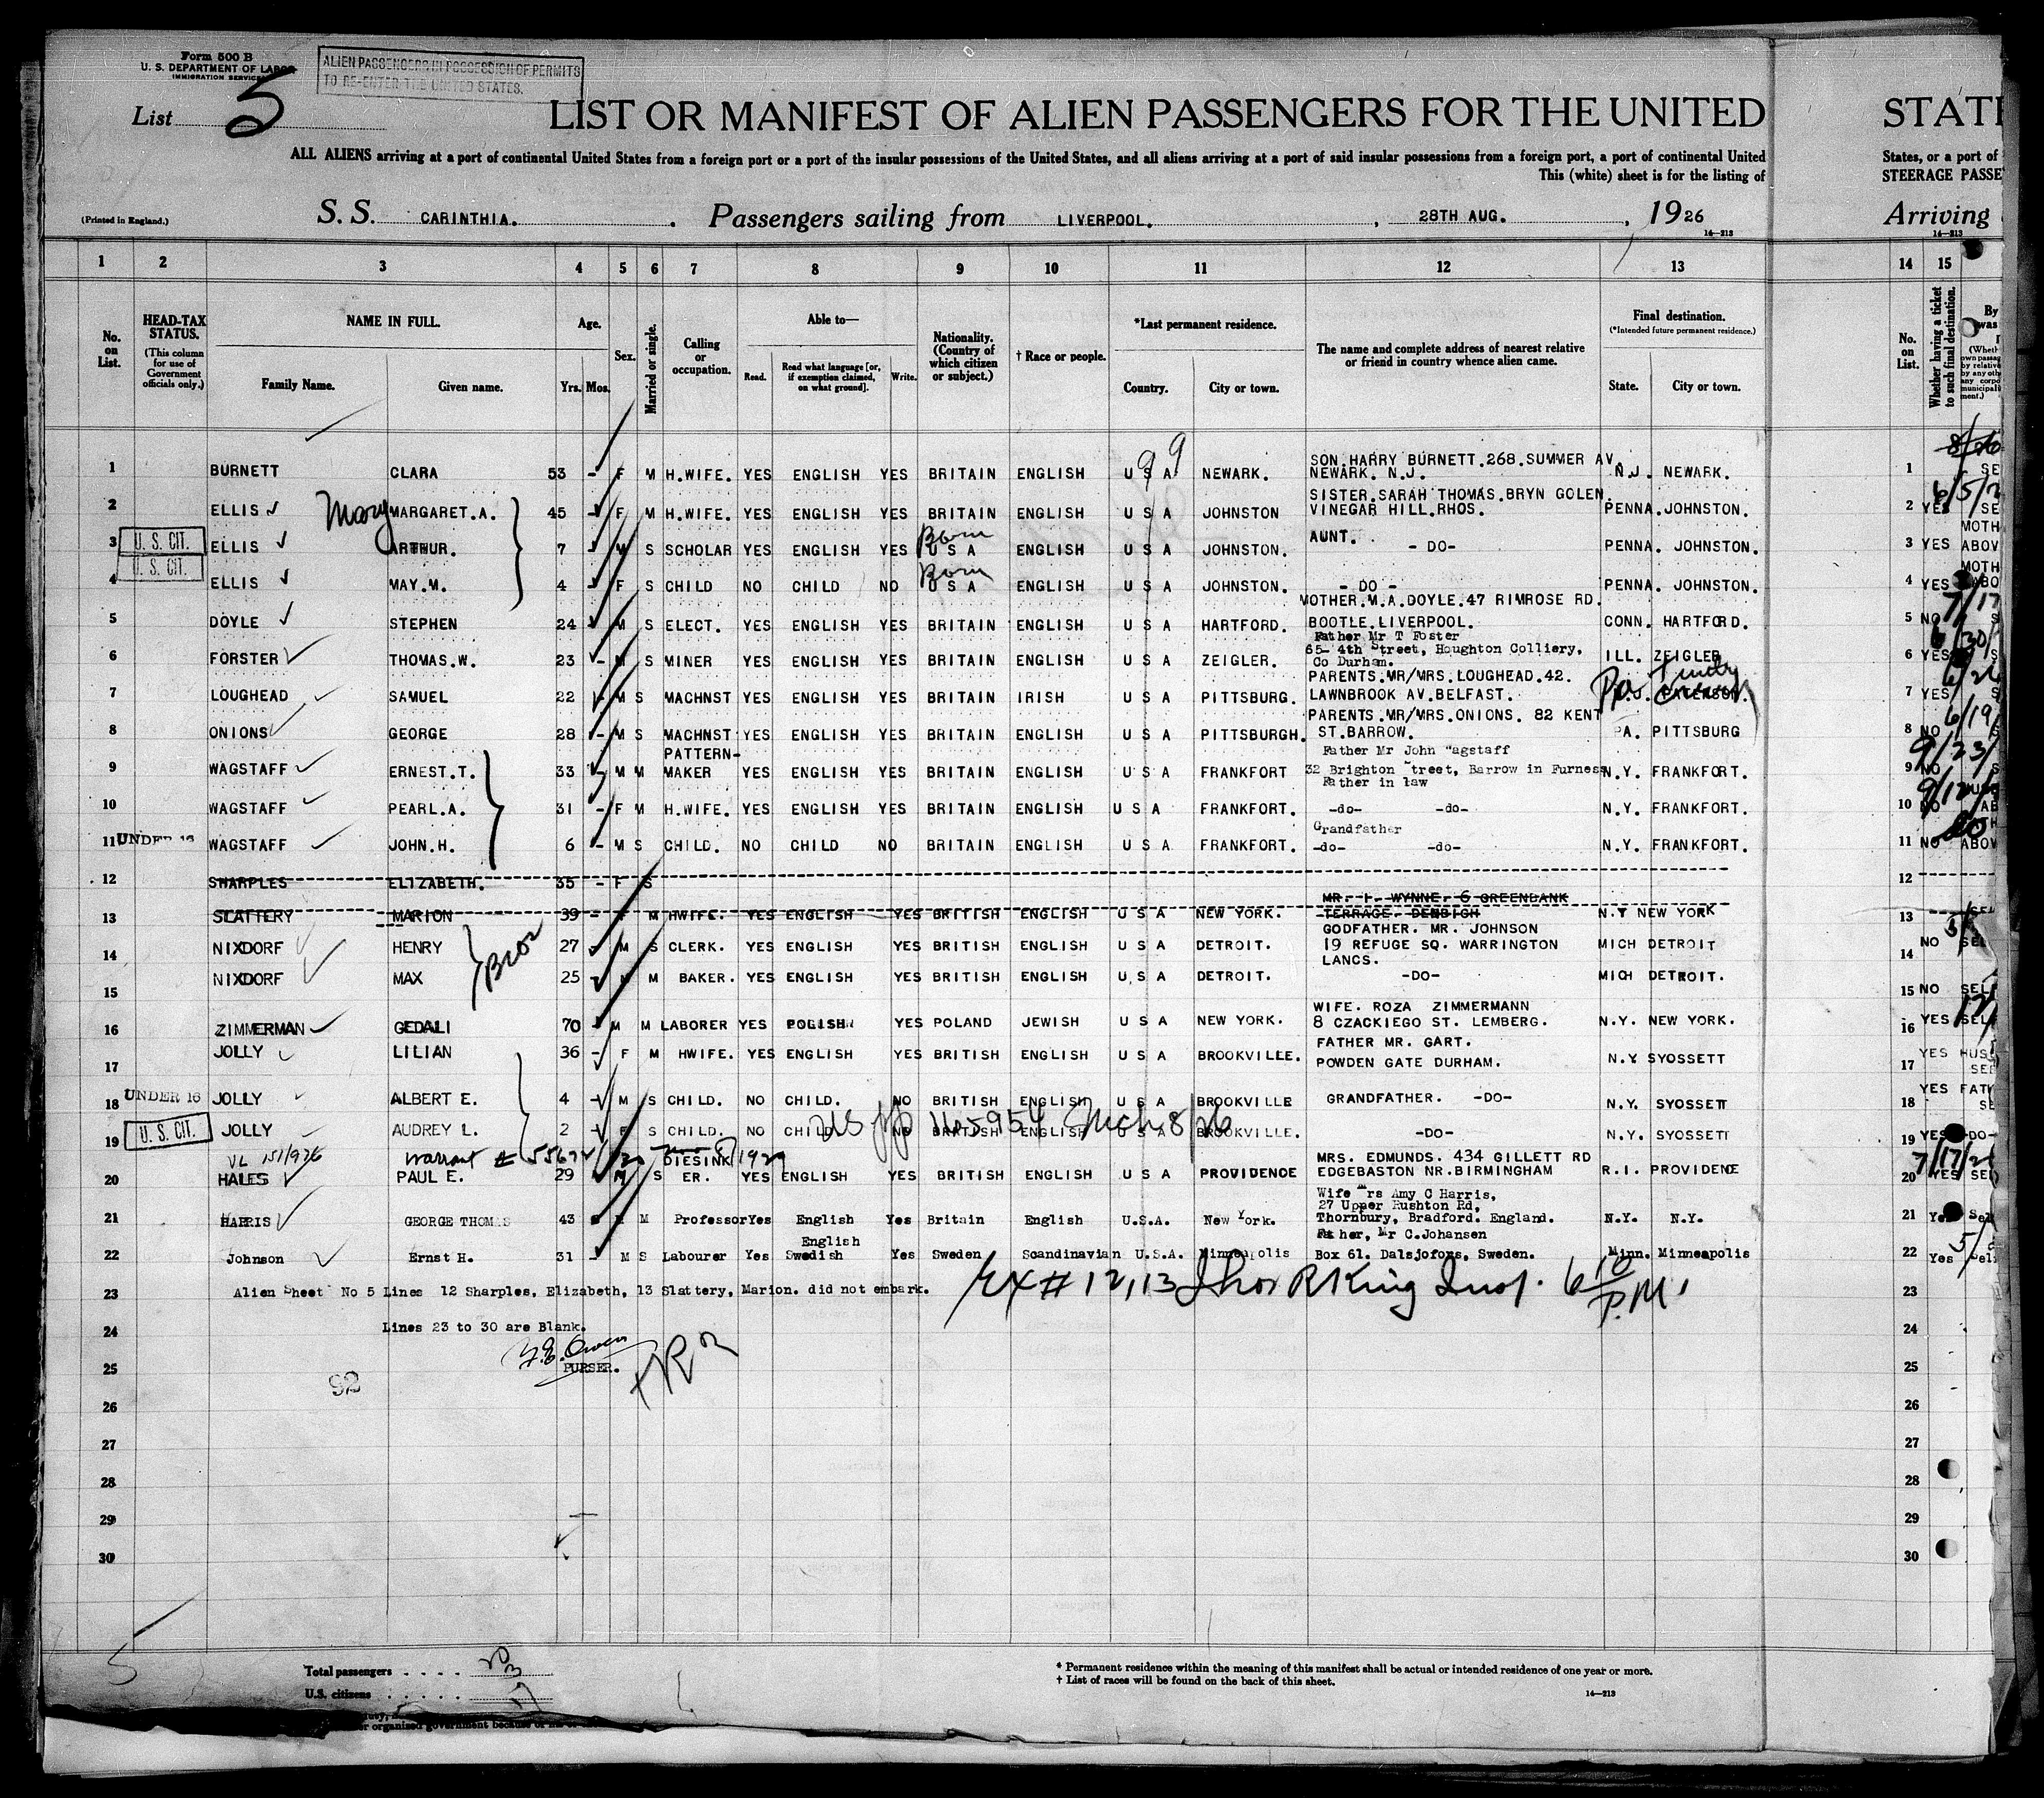 Form 500 B
U. S. DEPARTMENT OF LABOR
IMMIGRATION SERVICE
ALIEN PASSENGERS IN POSSESSION OF PERMITS
TO RE-ENTER THE UNITED STATES.
List 5
LIST OR MANIFEST OF ALIEN PASSENGERS FOR THE UNITED STATE
ALL ALIENS arriving at a port of continental United States from a foreign port or a port of the insular possessions of the United States, and all aliens arriving at a port of said insular possessions from a foreign port, a port of continental United States, or a port of
This (white) sheet is for the listing of STEERAGE PASSE
(Printed in England.)
S. S. CARINTHIA. Passengers sailing from LIVERPOOL. , 28TH AUG. , 1926 Arriving
14—213 14—213
1 2 3 4 5 6 7 8 9 10 11 12 13 14 15
No. on List.
HEAD-TAX STATUS.
(This column for use of Government officials only.)
NAME IN FULL.
Family Name. Given name.
Age.
Yrs. Mos.
Sex.
Married or single.
Calling or occupation.
Able to—
Read. Read what language [or, if exemption claimed, on what ground]. Write.
Nationality. (Country of which citizen or subject.)
† Race or people.
*Last permanent residence.
Country. City or town.
The name and complete address of nearest relative or friend in country whence alien came.
Final destination.
(*Intended future permanent residence.)
State. City or town.
No. on List.
Whether having a ticket to such final destination.
99
SON.HARRY BURNETT.268.SUMMER AV.
1 BURNETT CLARA 53 - F M H.WIFE. YES ENGLISH YES BRITAIN ENGLISH U S A NEWARK. NEWARK. N.J. N.J. NEWARK. 1 SE
SISTER.SARAH THOMAS.BRYN GOLEN.
2 ELLIS Mary MARGARET.A. 45 F M H.WIFE. YES ENGLISH YES BRITAIN ENGLISH U S A JOHNSTON VINEGAR HILL.RHOS. PENNA. JOHNSTON. 2 YES SE
Born AUNT. MOTH
3 U. S. CIT. ELLIS ARTHUR. 7 - M S SCHOLAR YES ENGLISH YES U S A ENGLISH U S A JOHNSTON. - DO- PENNA. JOHNSTON. 3 YES ABOV
Born MOTH
4 U. S. CIT. ELLIS MAY.M. 4 F S CHILD NO CHILD NO U S A ENGLISH U S A JOHNSTON. - DO - PENNA. JOHNSTON. 4 YES ABO
MOTHER.M.A.DOYLE.47 RIMROSE RD.
5 DOYLE STEPHEN 24 M S ELECT. YES ENGLISH YES BRITAIN ENGLISH U S A HARTFORD. BOOTLE.LIVERPOOL. CONN. HARTFORD. 5 NO S
Father Mr T Foster
65- 4th Street, Houghton Colliery,
6 FORSTER THOMAS.W. 23 - M S MINER YES ENGLISH YES BRITAIN ENGLISH U S A ZEIGLER. Co Durham. ILL. ZEIGLER 6 YES S
PARENTS.MR/MRS.LOUGHEAD.42.
7 LOUGHEAD SAMUEL 22 - M S MACHNST YES ENGLISH YES BRITAIN IRISH U S A PITTSBURG. LAWNBROOK AV.BELFAST. Pa. 7 YES S
PARENTS.MR/MRS.ONIONS. 82 KENT
8 ONIONS GEORGE 28 - M S MACHNST YES ENGLISH YES BRITAIN ENGLISH U S A PITTSBURGH. ST.BARROW. PA. PITTSBURG 8 NO S
PATTERN- Father Mr John Wagstaff
9 WAGSTAFF ERNEST.T. 33 - M M MAKER YES ENGLISH YES BRITAIN ENGLISH U S A FRANKFORT 32 Brighton Street, Barrow in Furness N.Y. FRANKFORT. 9 NO S
Father in law
10 WAGSTAFF PEARL.A. 31 - F M H.WIFE. YES ENGLISH YES BRITAIN ENGLISH U S A FRANKFORT. -do- -do- N.Y. FRANKFORT. 10 NO AB
Grandfather
11 UNDER 16 WAGSTAFF JOHN.H. 6 - M S CHILD. NO CHILD NO BRITAIN ENGLISH U S A FRANKFORT. -do- -do- N.Y. FRANKFORT. 11 NO ABOV
12 SHARPLES ELIZABETH. 35 - F S 12
MR. I. WYNNE. 6 GREENBANK
13 SLATTERY MARION 39 - F M HWIFE. YES ENGLISH YES BRITISH ENGLISH U S A NEW YORK. TERRAGE. DENBIGH N.Y NEW YORK 13 SEL
GODFATHER. MR. JOHNSON
14 NIXDORF HENRY 27 - M S CLERK. YES ENGLISH YES BRITISH ENGLISH U S A DETROIT. 19 REFUGE SQ. WARRINGTON MICH DETROIT 14 NO SEL
Bros LANCS.
15 NIXDORF MAX 25 - M M BAKER. YES ENGLISH YES BRITISH ENGLISH U.S A DETROIT. -DO- MICH DETROIT. 15 NO SELF
WIFE. ROZA ZIMMERMANN
16 ZIMMERMAN GEDALI 70 M M LABORER YES POLISH YES POLAND JEWISH U S A NEW YORK. 8 CZACKIEGO ST. LEMBERG. N.Y. NEW YORK. 16 YES SELF
FATHER MR. GART.
17 JOLLY LILIAN 36 - F M HWIFE. YES ENGLISH YES BRITISH ENGLISH U S A BROOKVILLE. POWDEN GATE DURHAM. N.Y. SYOSSETT 17 YES HUS
18 UNDER 16 JOLLY ALBERT E. 4 - M S CHILD. NO CHILD. NO BRITISH ENGLISH U S A BROOKVILLE GRANDFATHER. -DO- N.Y. SYOSSETT 18 YES FATH
19 U. S. CIT. JOLLY AUDREY L. 2 - F S CHILD. NO CHILD NO BRITISH ENGLISH U S A BROOKVILLE. -DO- N.Y. SYOSSETT 19 YES -DO-
DIESINK MRS. EDMUNDS. 434 GILLETT RD
20 HALES PAUL E. 29 M S ER. YES ENGLISH YES BRITISH ENGLISH U S A PROVIDENCE EDGEBASTON NR.BIRMINGHAM R.I. PROVIDENE 20 YES SEL
Wife Mrs Amy C Harris,
27 Upper Rushton Rd,
21 HARRIS GEORGE THOMAS 43 M M Professor Yes English Yes Britain English U.S.A. New York. Thornbury, Bradford. England. N.Y. N.Y. 21 Yes Sel
English Father, Mr C.Johansen
22 Johnson Ernst H. 31 - M S Labourer Yes Swedish Yes Sweden Scandinavian U.S.A. Minneapolis Box 61. Dalsjofors, Sweden. Minn. Minneapolis 22 Yes Sel
23 Alien Sheet No 5 Lines 12 Sharples, Elizabeth, 13 Slattery, Marion. did not embark. Ex # 12,13 Thos R King Insp. 23
24 Lines 23 to 30 are Blank. 24
25 PURSER. 25
92
26 26
27 27
28 28
29 29
30 30
Total passengers . . . .
U.S. citizens . . . . .
* Permanent residence within the meaning of this manifest shall be actual or intended residence of one year or more.
† List of races will be found on the back of this sheet.
14—213
or organized government because of his or